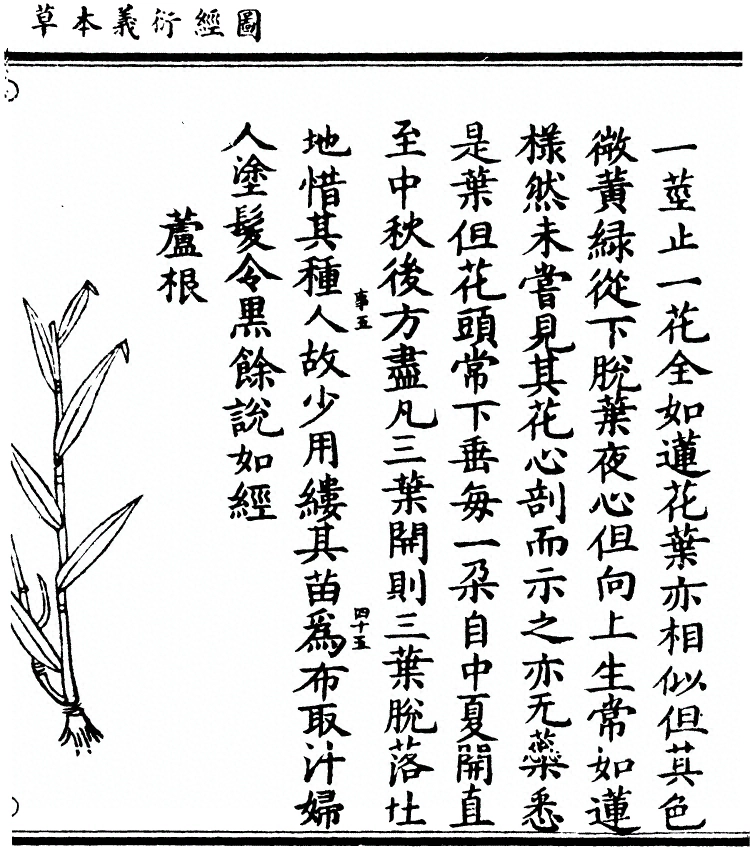 圖經衍義本草
一莖止一花全如蓮花葉亦相似但其色
微黃緑從下脫葉夜心但向上生常如蓮
樣然未嘗見其花心剖而示之亦无蘂悉
是葉但花頭常下垂每一朶自中夏開直
至中秋後方盡凡三葉開則三葉脫落仕
地惜其種人故少用縷其苗爲布取汁婦
事五
四十五
人塗髮令黒餘說如經
蘆根